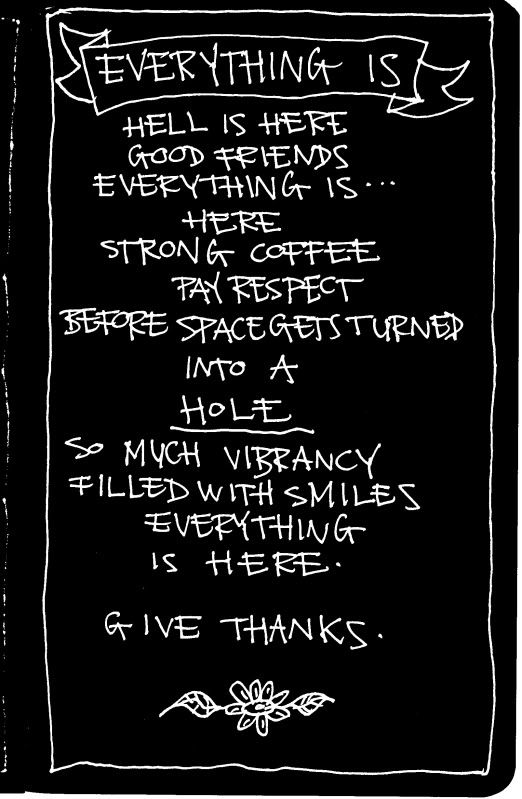 EVERYTHING IS
HELL IS HERE
GOOD FRIENDS
EVERYTHING IS...
HERE
STRONG COFFEE
PAY RESPECT
BEFORE SPACE GETS TURNED
INTO A
HOLE
SO MUCH VIBRANCY
FILLED WITH SMILES
EVERYTHING
IS HERE.
GIVE THANKS.